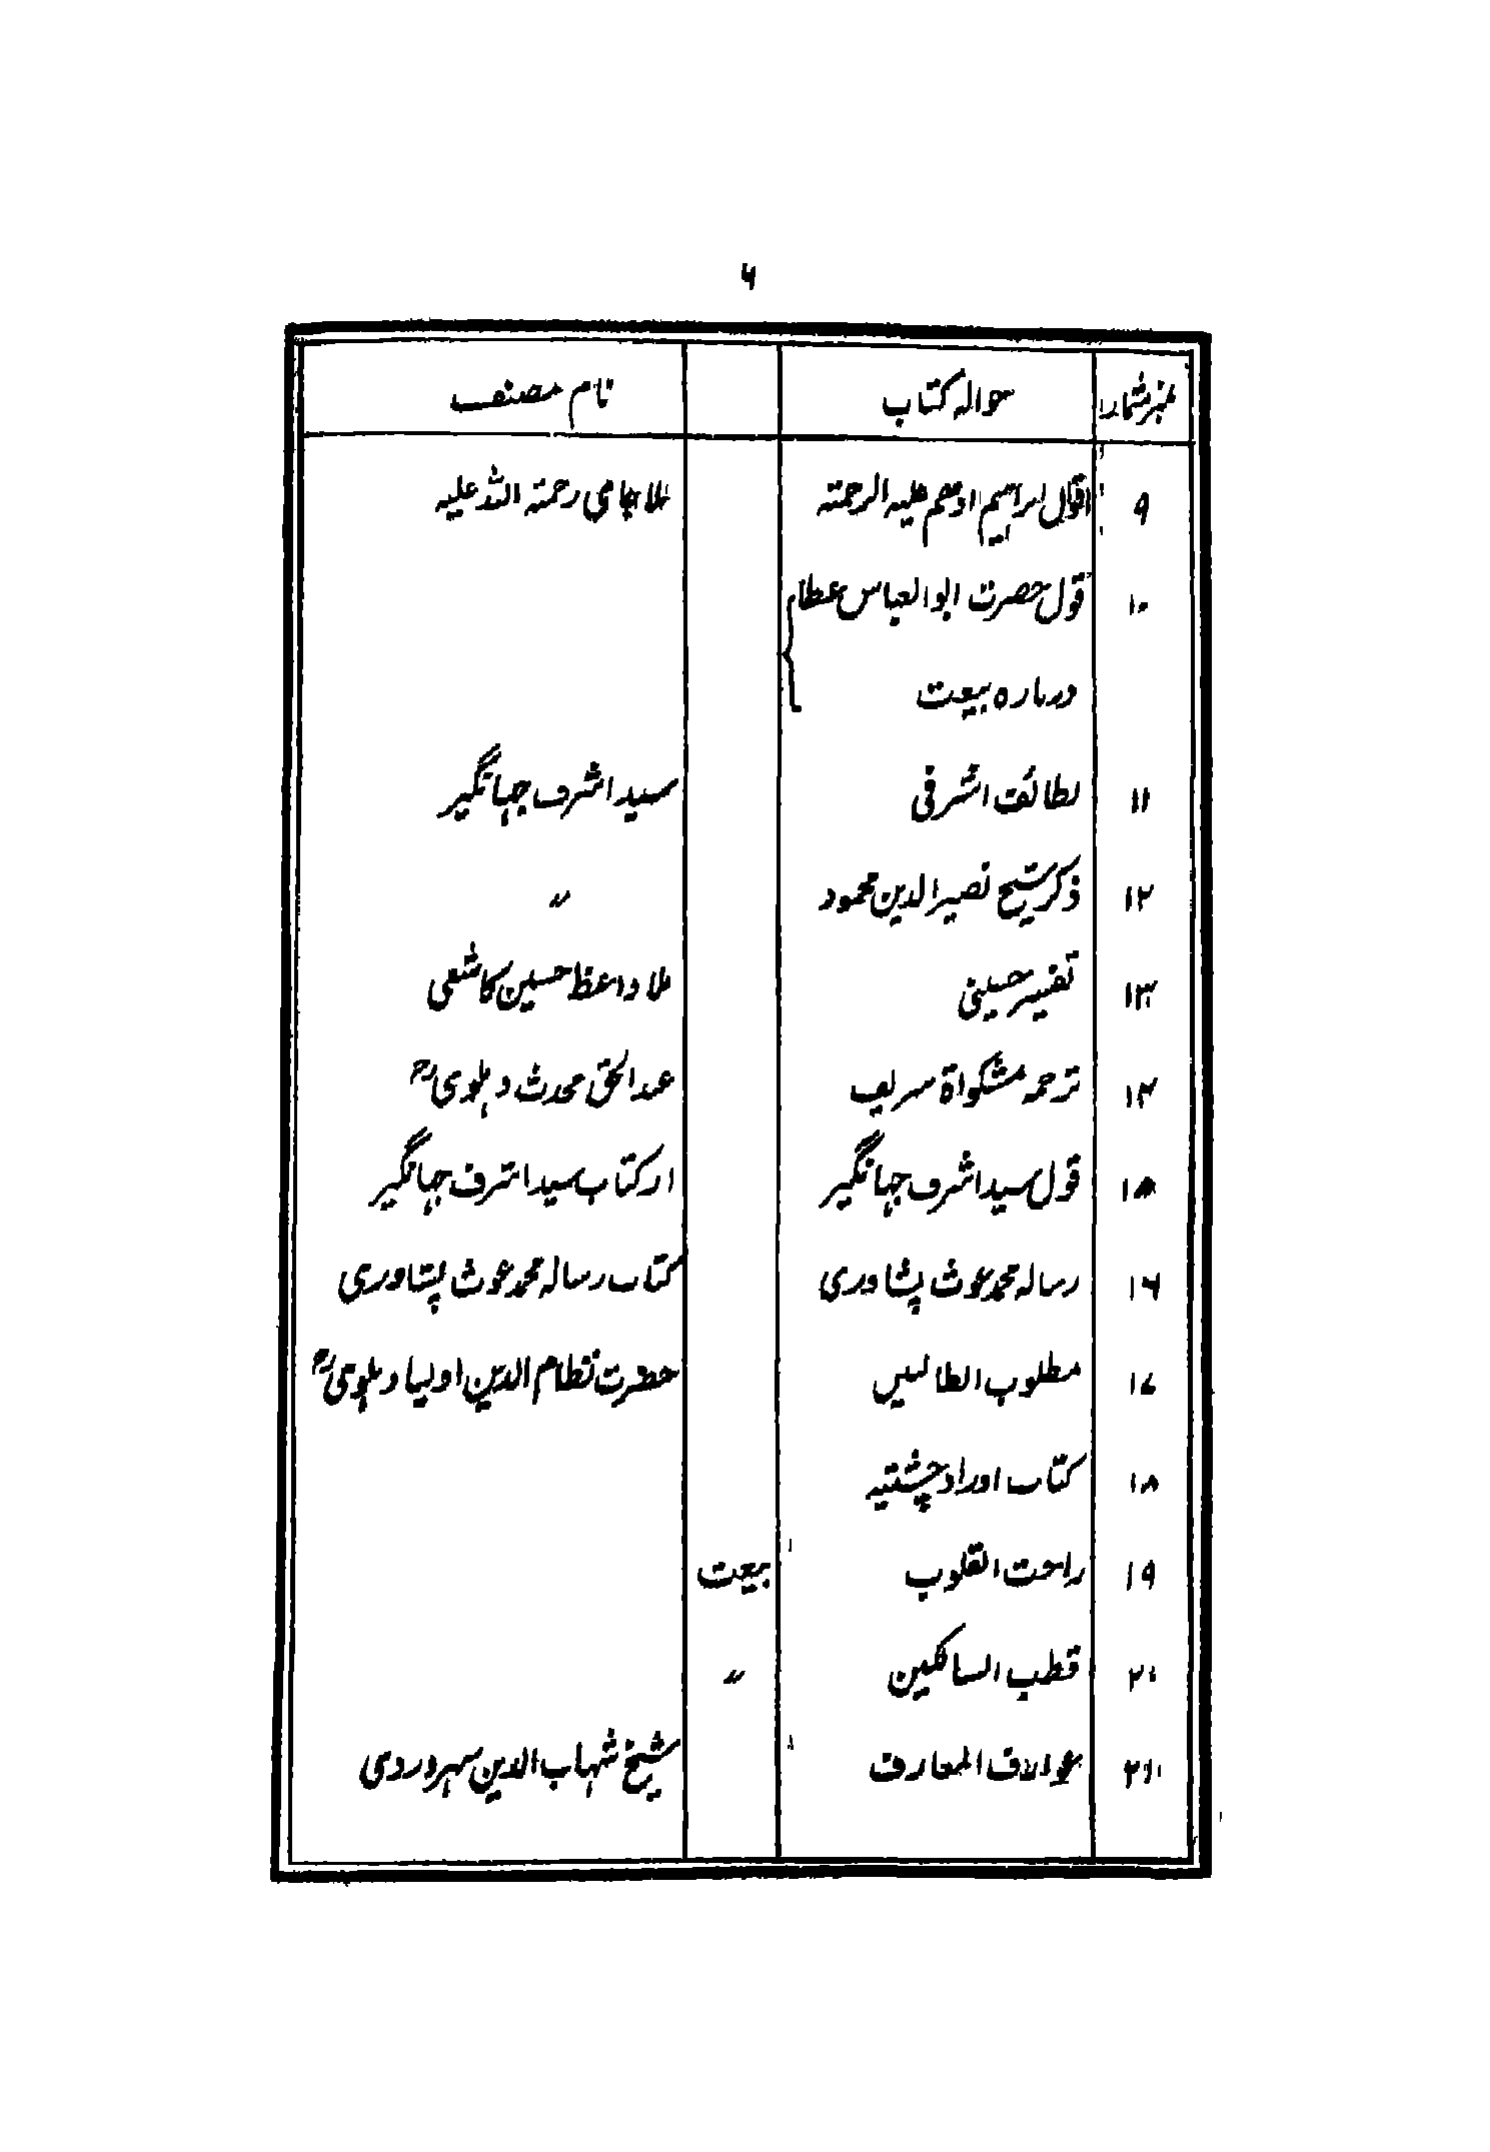 ۶
نمبر شمار حوالہ کتاب نام مصنف
۹ اقوال ابراہیم ادھم علیہ الرحمتہ ملا جامی رحمتہ اللہ علیہ
۱۰ قول حضرت ابوالعباس عطام
دربارہ بیعت
۱۱ لطائف اشرفی سید اشرف جہانگیر
۱۲ ذکر شیخ نصیر الدین محمود 〃
۱۳ تفسیر حسینی ملا واعظ حسین کاشفی
۱۴ ترجمہ مشکواۃ شریف عبدالحق محدث دہلوی رح
۱۵ قول سید اشرف جہانگیر از کتاب سید اشرف جہانگیر
۱۶ رسالہ محمد غوث پشاوری کتاب رسالہ محمد غوث پشاوری
۱۷ مطلوب الطالبین حضرت نظام الدین اولیا دہلوی رح
۱۸ کتاب اوراد چشتیہ
۱۹ راحت القلوب بیعت
۲۰ قطب السالکین 〃
۲۱ عوالاف المعارف شیخ شہاب الدین سہروردی